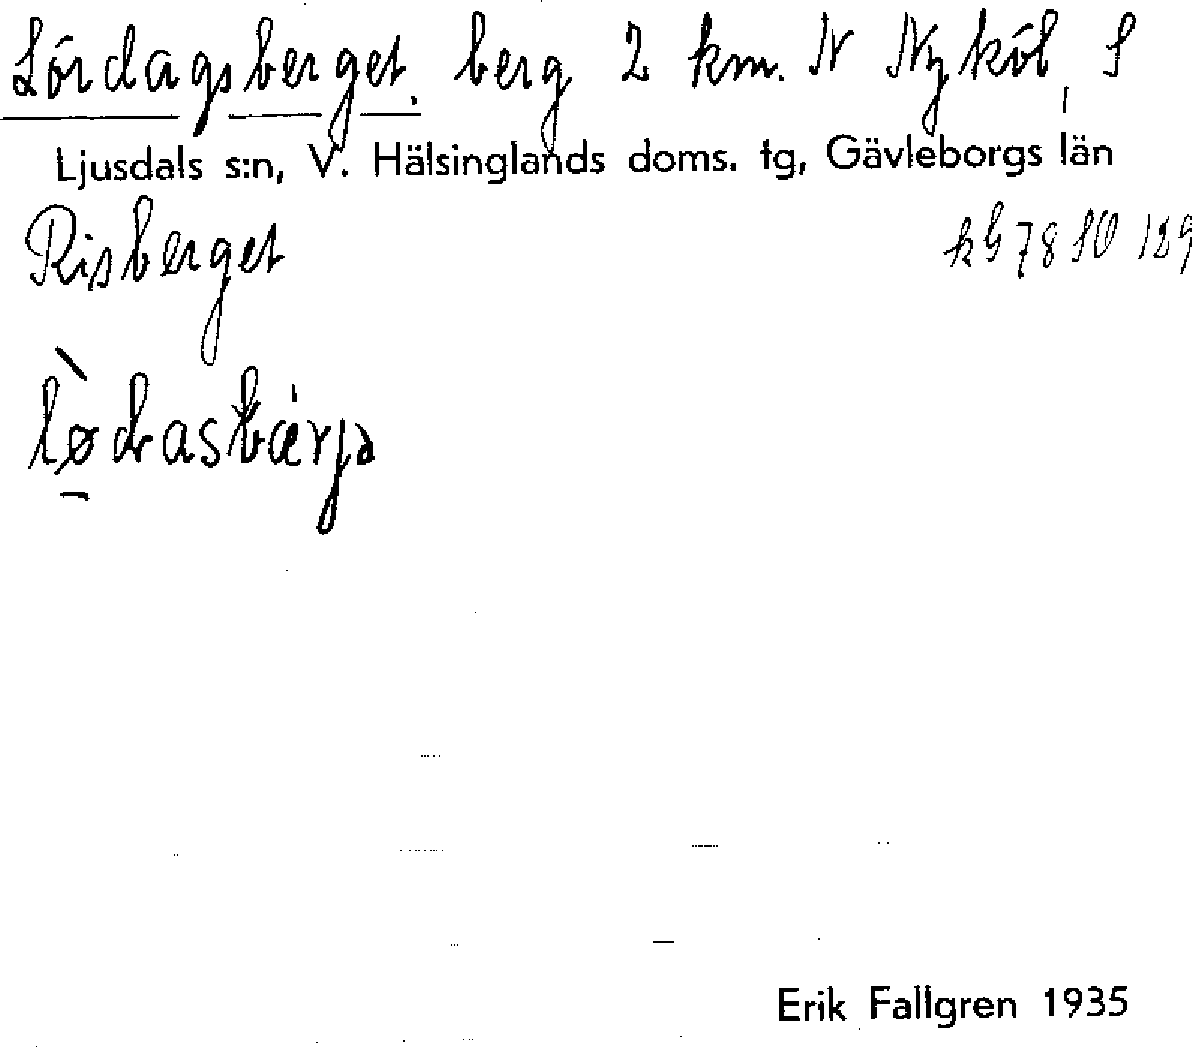 Lördagsberget, berg 2 km. N Nyköl, S
Ljusdals s:n, V. Hälsinglands doms. tg, Gävleborgs län
Risberget
lø̀drasbærjə
Erik Fallgren 1935